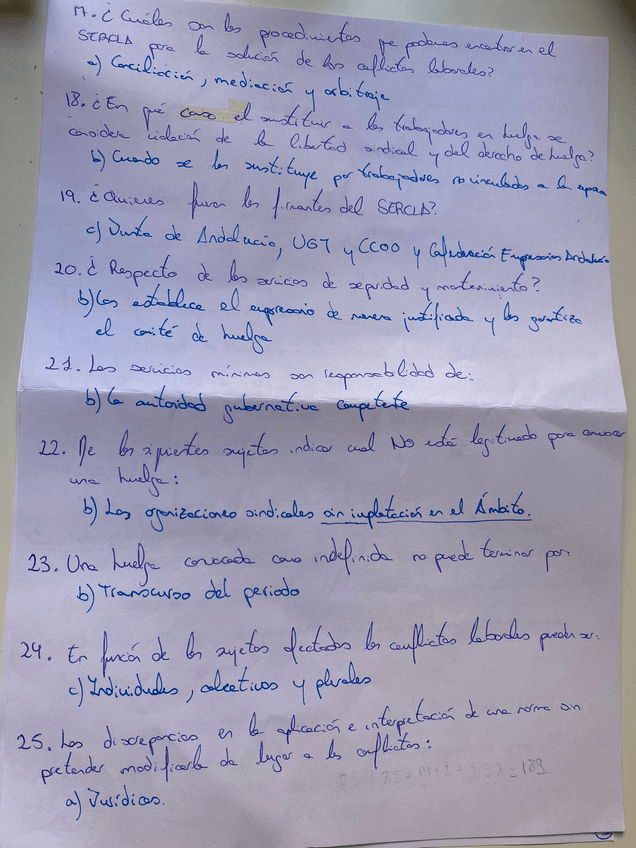 17. ¿Cuáles son los procedimientos que podemos encontrar en el
SERCLA para la solución de los conflictos laborales?
a) Conciliación, mediación y arbitraje
18. ¿En qué caso el sustituir a los trabajadores en huelga se
considera violación de la libertad sindical y del derecho de huelga?
b) Cuando se les sustituye por trabajadores no vinculados a la empresa
19. ¿Quienes fueron los firmantes del SERCLA?
c) Junta de Andalucía, UGT y CCOO y Confederación Empresarios Andalucía
20. ¿Respecto de los servicios de seguridad y mantenimiento?
b) Los establece el empresario de manera justificada y los garantiza
el comité de huelga
21. Los servicios mínimos son responsabilidad de:
b) La autoridad gubernativa competente
22. De los siguientes sujetos indicar cual No está legitimado para convocar
una huelga:
b) Las organizaciones sindicales sin implantación en el Ámbito.
23. Una huelga convocada como indefinida no puede terminar por:
b) Transcurso del periodo
24. En función de los sujetos afectados los conflictos laborales pueden ser:
c) Individuales, colectivos y plurales
25. Las discrepancias en la aplicación e interpretación de una norma sin
pretender modificarla da lugar a los conflictos:
a) Jurídicos.
= 189